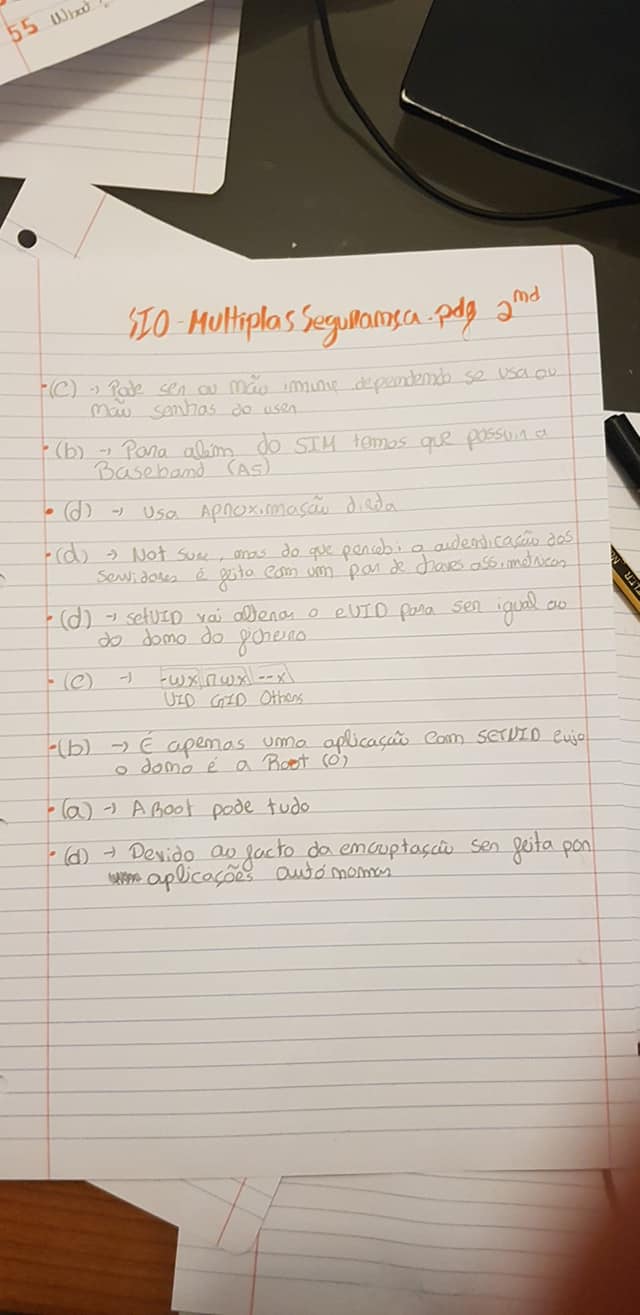 55 What
SIO - Multiplas Seguransa.pdf 2nd
(c) → Pode ser ou não imune dependendo se usa ou
não senhas do user
(b) → Para além do SIM temos que possuir a
Baseband (A5)
(d) → Usa Aproximação direta
(d) → Not sure, mas do que percebi a autenticação dos
servidores é feita com um par de chaves assimetricas
(d) → setUID vai alterar o eUID para ser igual ao
do dono do ficheiro
(c) → -wx|rwx|--x|
UID GID Others
(b) → É apenas uma aplicação com SETUID cujo
o dono é a Root (0)
(a) → A Root pode tudo
(d) → Devido ao facto da encruptasção ser feita por
aplicações autónomas